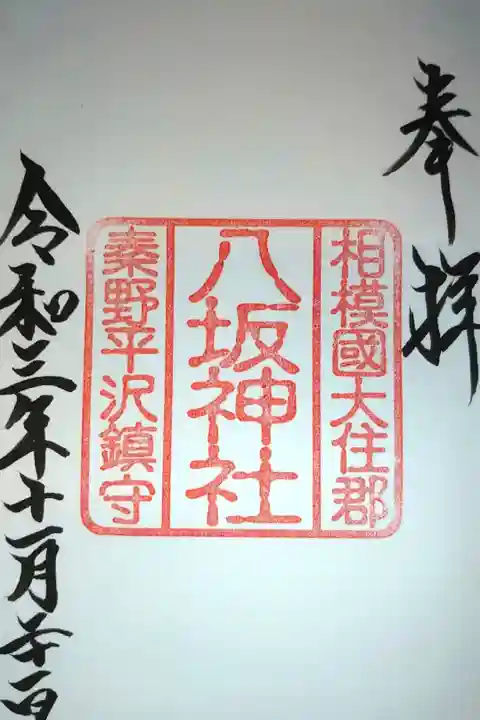 奉拝
相模國大住郡
八坂神社
秦野平沢鎮守
令和三年十一月廿一日